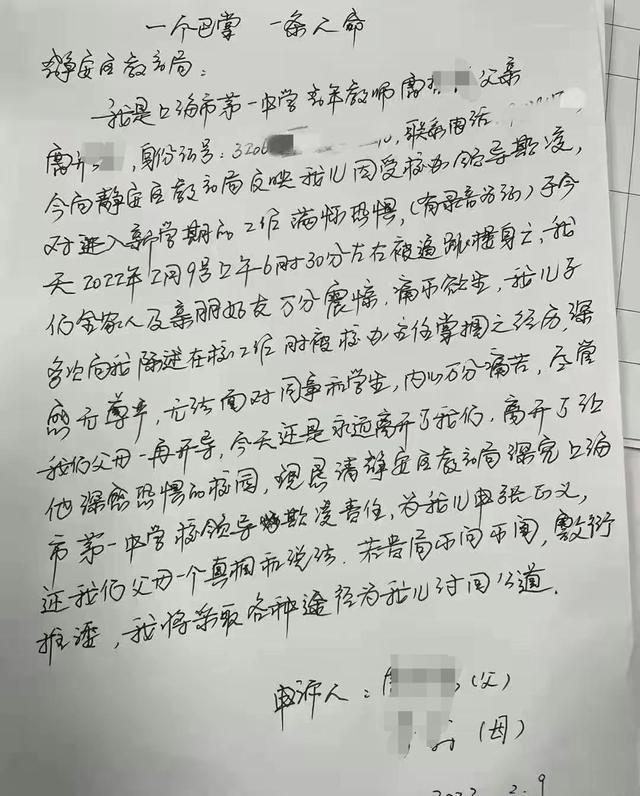 一个巴掌 一条人命
静安区教育局:
我是上海市第一中学青年教师 父亲
,身份证号:320 ,联系电话
今向静安区教育局反映我儿因受校办领导欺凌,
对进入新学期的工作满怀恐惧,(有录音为证)于今
天2022年2月9号上午6时30分左右被逼跳楼身亡,我
们全家人及亲朋好友万分震惊,痛不欲生,我儿子
多次向我陈述在校工作时被校办主任掌掴之经历,深
感无尊严,无法面对同事和学生,内心万分痛苦,尽管
我们父母一再开导,今天还是永远离开了我们,离开了让
他深感恐惧的校园,现恳请静安区教育局深究上海
市第一中学校领导欺凌责任,为我儿申张正义,
还我们父母一个真相和说法.若贵局不问不闻,敷衍
推诿,我将采取各种途径为我儿讨回公道.
申诉人: (父)
(母)
2022.2.9